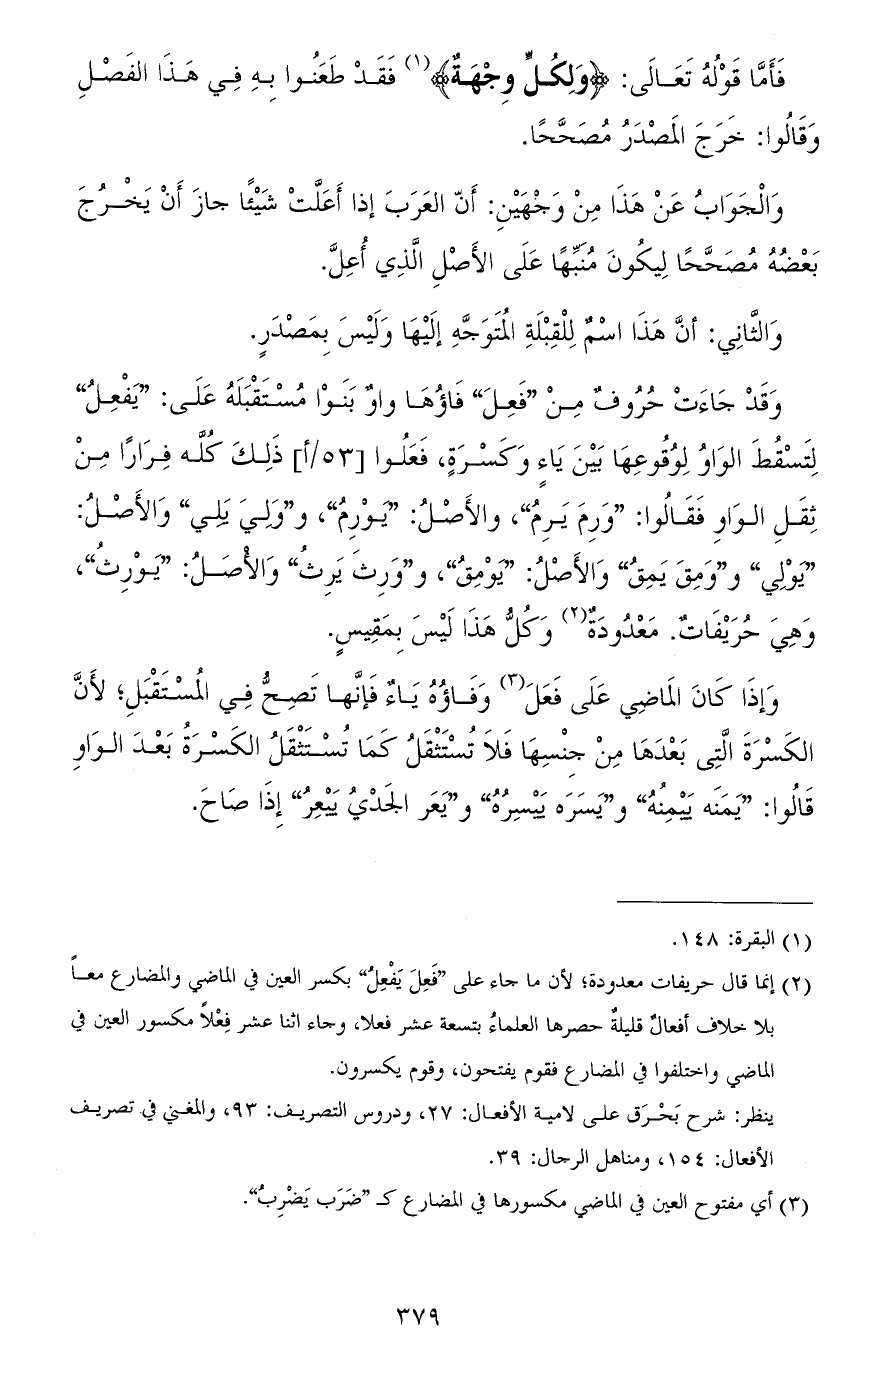 فَأَمَّا قَوْلُهُ تَعَالَى: ﴿وَلِكُلٍّ وِجْهَةٌ﴾(١) فَقَدْ طَعَنُوا بِهِ فِي هَذَا الفَصْلِ
وَقَالُوا: خَرَجَ المَصْدَرُ مُصَحَّحًا.
وَالْجَوَابُ عَنْ هَذَا مِنْ وَجْهَيْنِ: أَنّ العَرَبَ إذا أَعَلَّتْ شَيْئًا جازَ أَنْ يَخْرُجَ
بَعْضُهُ مُصَحَّحًا لِيكُونَ مُنَبِّهًا عَلَى الأَصْلِ الَّذِي أُعِلَّ.
وَالثَّانِي: أنَّ هَذَا اسْمٌ لِلْقِبْلَةِ المُتَوَجَّهِ إلَيْهَا وَلَيْسَ بِمَصْدَرٍ.
وَقَدْ جَاءَتْ حُرُوفٌ مِنْ "فَعِلَ" فَاؤُهَا واوٌ بَنَوْا مُسْتَقْبَلَهُ عَلَى: "يَفْعِلُ"
لِتَسْقُطَ الوَاوُ لِوُقُوعِهَا بَيْنَ يَاءٍ وَكَسْرَةٍ، فَعَلُوا [٥٣/أ] ذَلِكَ كُلَّه فِرَارًا مِنْ
ثِقَلِ الوَاوِ فَقَالُوا: "وَرِمَ يَرِمُ"، والأَصْلُ: "يَوْرِمُ"، و"وَلِيَ يَلِي" وَالأَصْلُ:
"يَوْلِي" و"وَمِقَ يَمِقُ" وَالأَصْلُ: "يَوْمِقُ"، و"وَرِثَ يَرِثُ" وَالأَصْلُ: "يَوْرِثُ"،
وَهِيَ حُرَيْفَاتٌ. مَعْدُودَةٌ(٢) وَكُلُّ هَذَا لَيْسَ بِمَقِيسٍ.
وَإذَا كَانَ المَاضِي عَلَى فَعَلَ(٣) وَفَاؤُهُ يَاءٌ فَإنَّها تَصِحُّ فِي المُسْتَقْبَلِ؛ لأَنَّ
الكَسْرَةَ الَّتِى بَعْدَهَا مِنْ جِنْسِهَا فَلاَ تُسْتَثْقَلُ كَمَا تُسْتَثْقَلُ الكَسْرَةُ بَعْدَ الوَاوِ
قَالُوا: "يَمَنَه يَيْمِنُهُ" و"يَسَرَه يَيْسِرُهُ" و"يَعَر الجَدْيُ يَيْعِرُ" إذَا صَاحَ.
(١) البقرة: ١٤٨.
(٢) إنما قال حريفات معدودة؛ لأن ما جاء على "فَعِلَ يَفْعِلُ" بكسر العين في الماضي والمضارع معاً
بلا خلاف أفعالٌ قليلةٌ حصرها العلماءُ بتسعة عشر فعلا، وجاء اثنا عشر فِعْلاً مكسور العين في
الماضي واختلفوا في المضارع فقوم يفتحون، وقوم يكسرون.
ينظر: شرح بَحْرَق على لامية الأفعال: ٢٧، ودروس التصريف: ٩٣، والمغني في تصريف
الأفعال: ١٥٤، ومناهل الرجال: ٣٩.
(٣) أي مفتوح العين في الماضي مكسورها في المضارع كـ "ضَرَب يَضْرِبُ".
٣٧٩